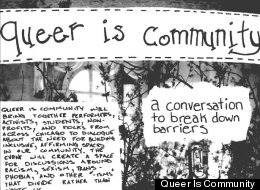 queer is community
QUEER IS COMMUNITY WILL
BRING TOGETHER PERFORMERS,
ACTIVISTS, STUDENTS, NON
PROFITS, AND FOLKS FROM
ACROSS CHICAGO TO DIALOGUE
ABOUT THE NEED FOR BUILDING
INCLUSIVE, AFFIRMING SPACES
IN OUR COMMUNITY. THE
EVENT WILL CREATE A SPACE
FOR DISCUSSIONS AROUND
RACISM, SEXISM, TRANS-
PHOBIA, AND OTHER ISMS
THAT DIVIDE RATHER THAN
a conversation
to break down
barriers
Queer Is Community